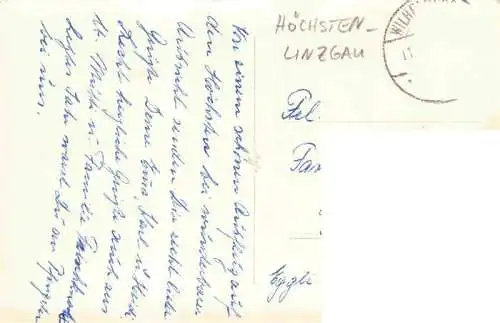 Von einem schönen Ausflug auf
dem Höchsten bei wunderbarer
Aussicht senden Dir recht liebe
Grüße Deine Erna, Karl u. Heidi.
Recht herzliche Grüße auch an
Mutti u. Familie
Jahr warst Du an Pfingsten
bei uns.
HÖCHSTEN-
LINZGAU
WILH
Fel
Fam
Eggli